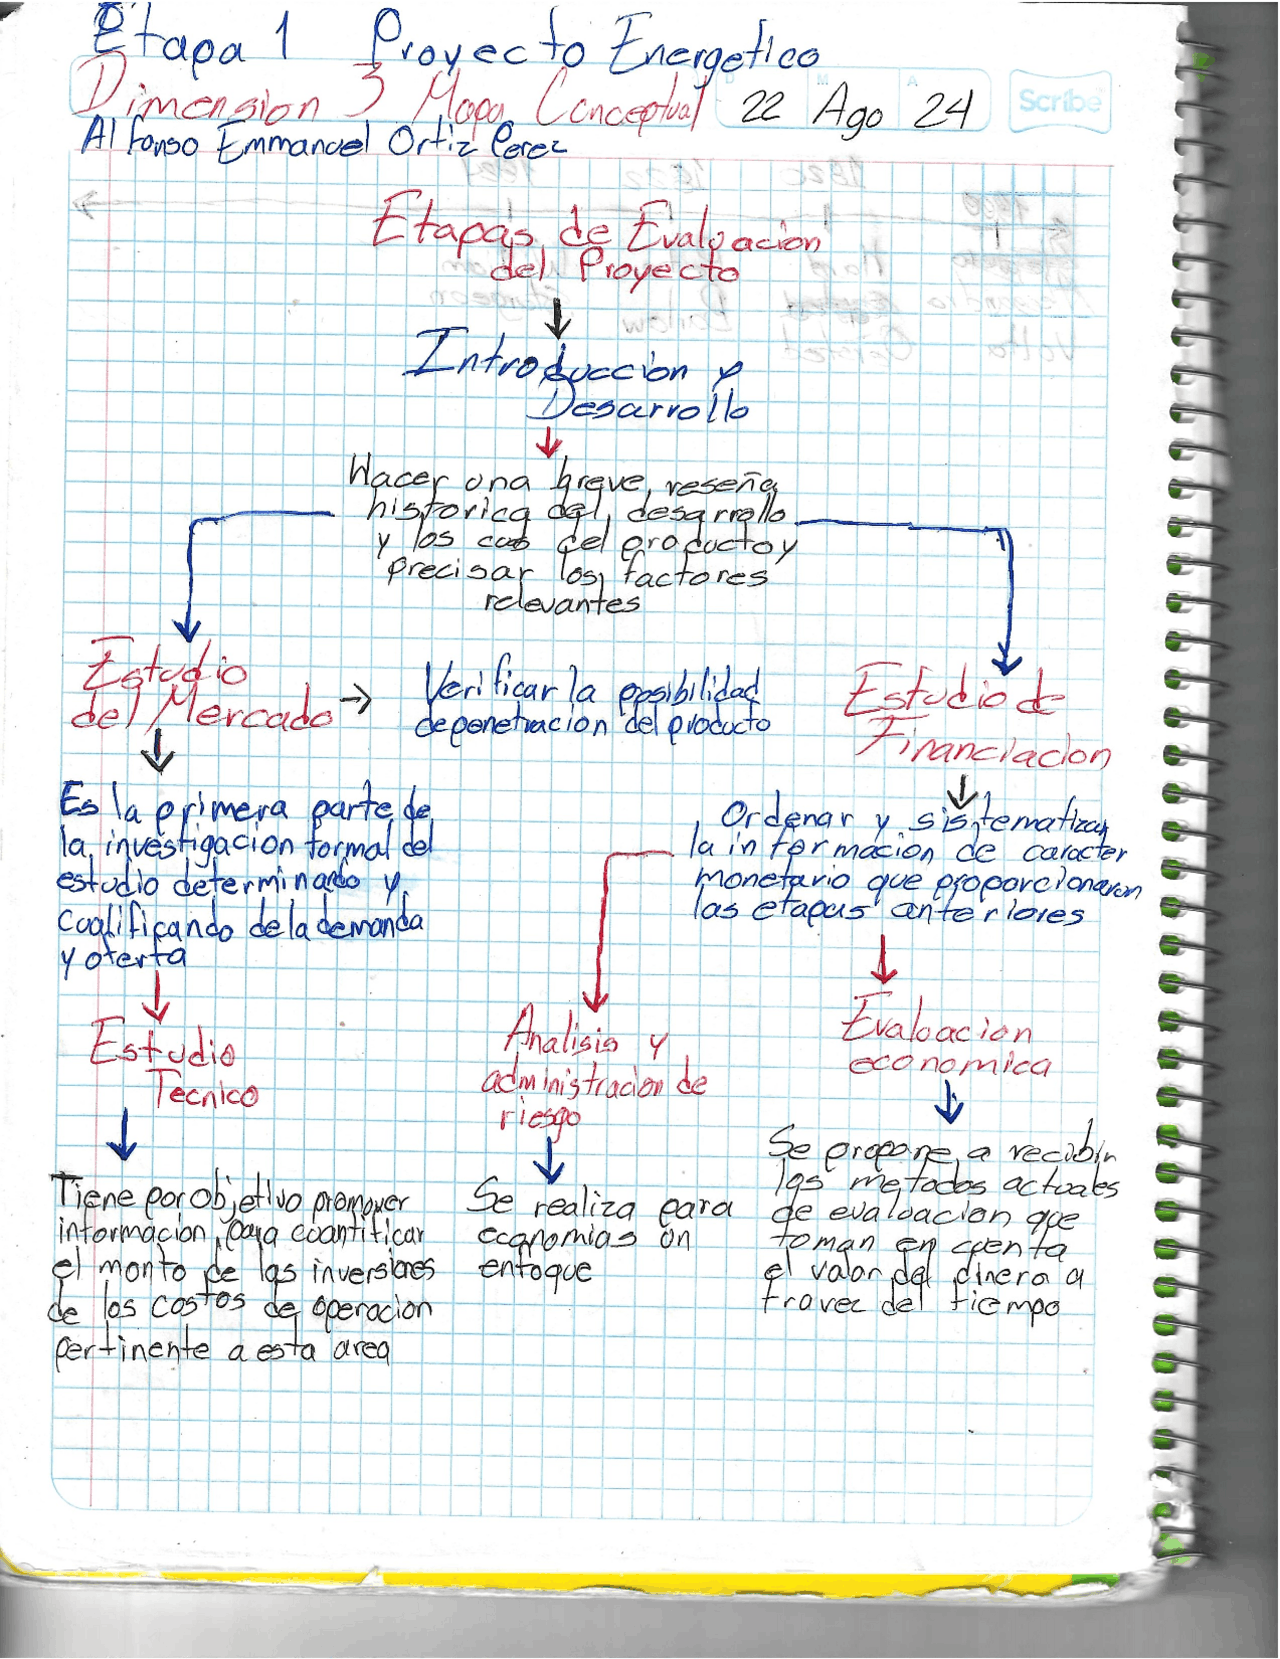 Etapa 1 Proyecto Energetico
Dimension 3 Mapa Conceptual 22 Ago 24
Scribe
Alfonso Emmanuel Ortiz Perez
Etapas de Evaluacion
del Proyecto
Introduccion y
Desarrollo
Hacer una breve reseña
historica del desarrollo
y los del producto y
precisar los factores
relevantes
Estudio
del Mercado
Verificar la posibilidad
de penetracion del producto
Estudio de
Financiacion
Es la primera parte de
la investigacion formal del
estudio determinando y
cualificando de la demanda
y oferta
Ordenar y sistematizar
la informacion de caracter
monetario que proporcionaron
las etapas anteriores
Estudio
Tecnico
Analisis y
administracion de
riesgo
Evaluacion
economica
Tiene por objetivo promover
informacion para cuantificar
el monto de las inversiones
de los costos de operacion
pertinente a esta area
Se realiza para
economias un
enfoque
Se propone a recibir
los metodos actuales
de evaluacion que
toman en cuenta
el valor del dinero a
travez del tiempo